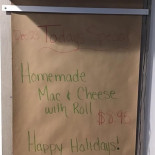 Homemade
Mac & Cheese
with Roll
Happy Holidays!